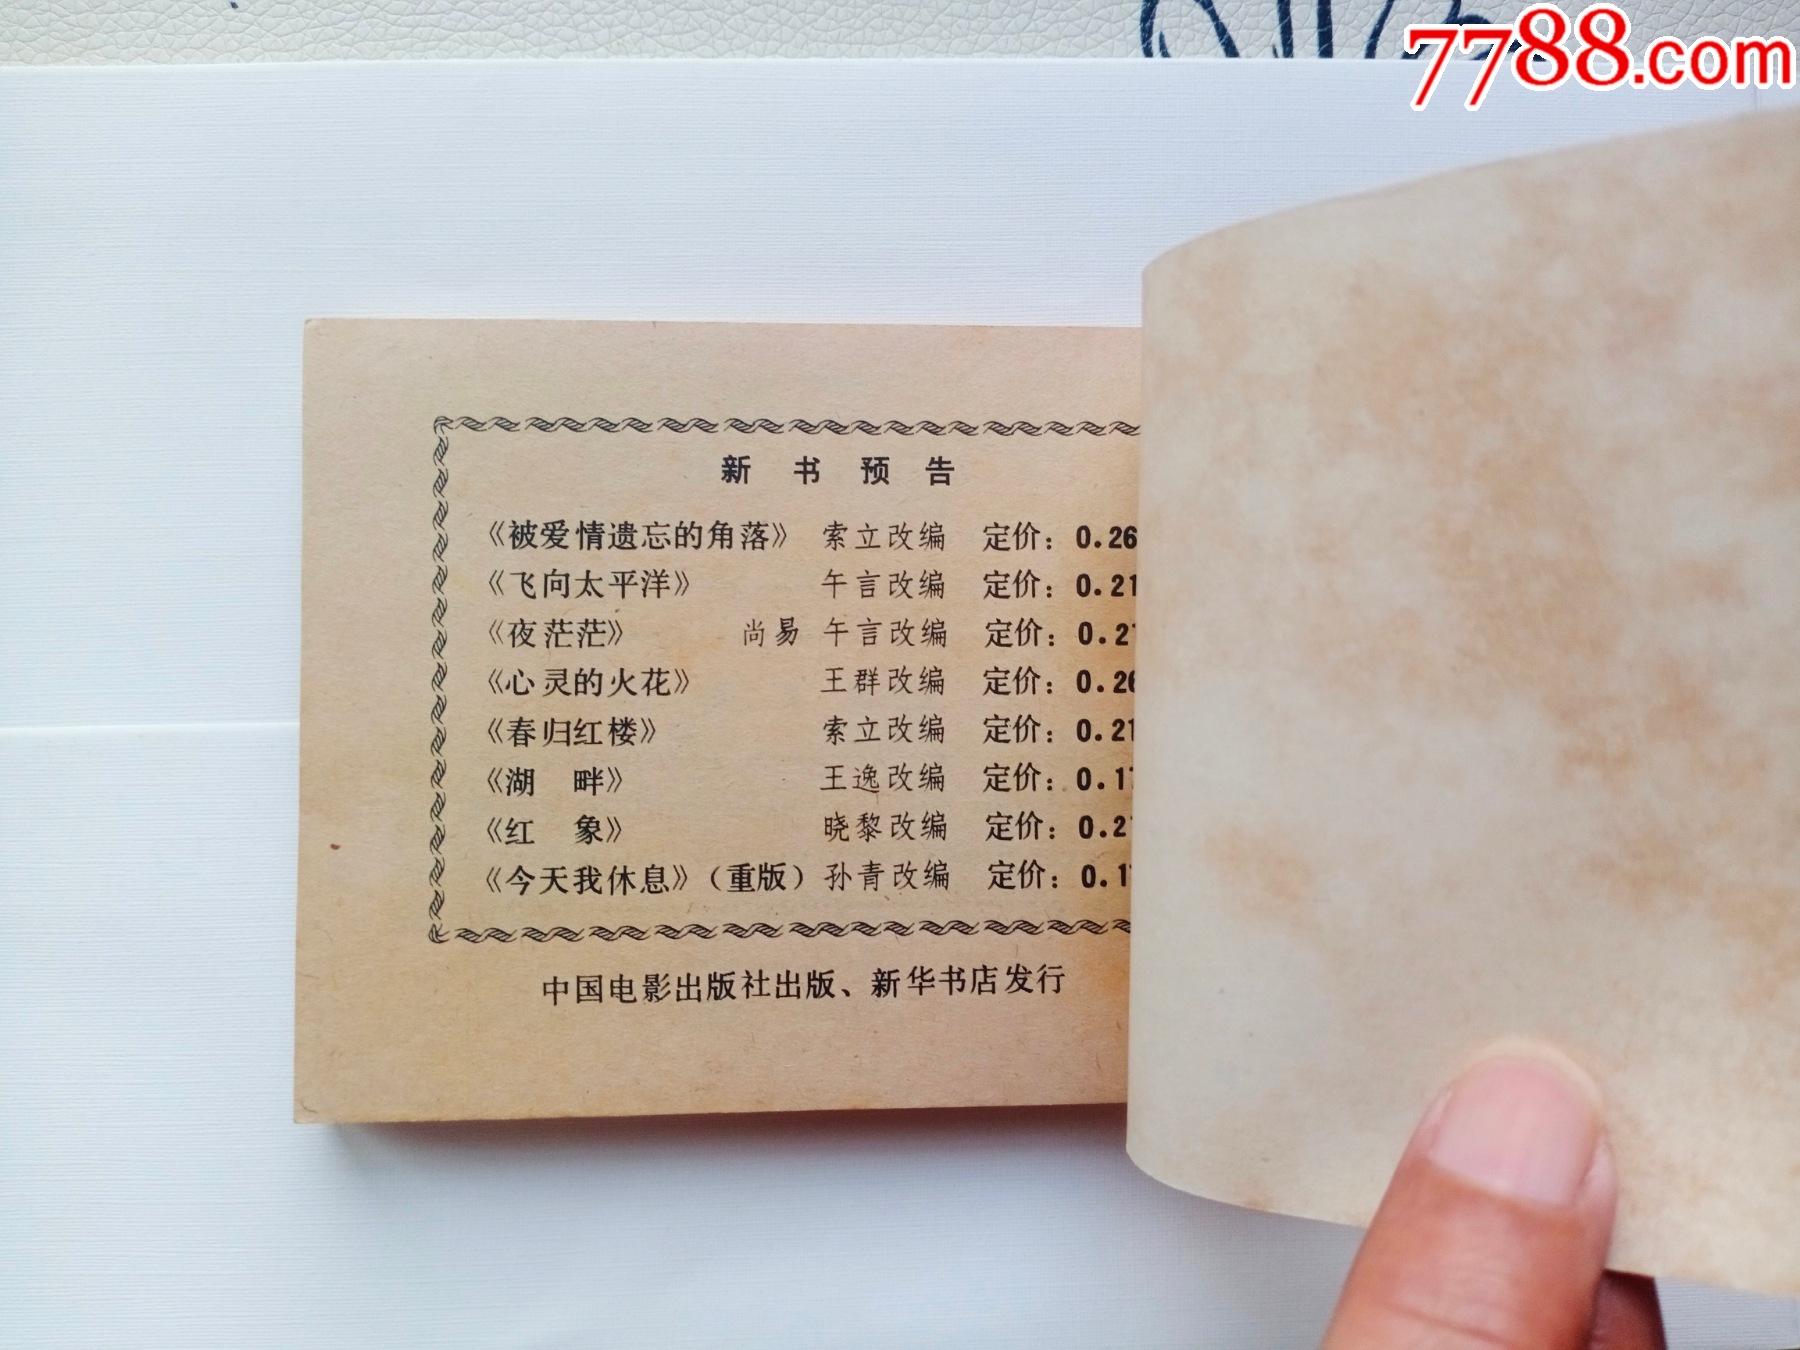 7788.com
新书预告
《被爱情遗忘的角落》 索立改编 定价：0.26
《飞向太平洋》 午言改编 定价：0.21
《夜茫茫》 尚易 午言改编 定价：0.2
《心灵的火花》 王群改编 定价：0.26
《春归红楼》 索立改编 定价：0.21
《湖 畔》 王逸改编 定价：0.1
《红 象》 晓黎改编 定价：0.2
《今天我休息》（重版） 孙青改编 定价：0.1
中国电影出版社出版、新华书店发行